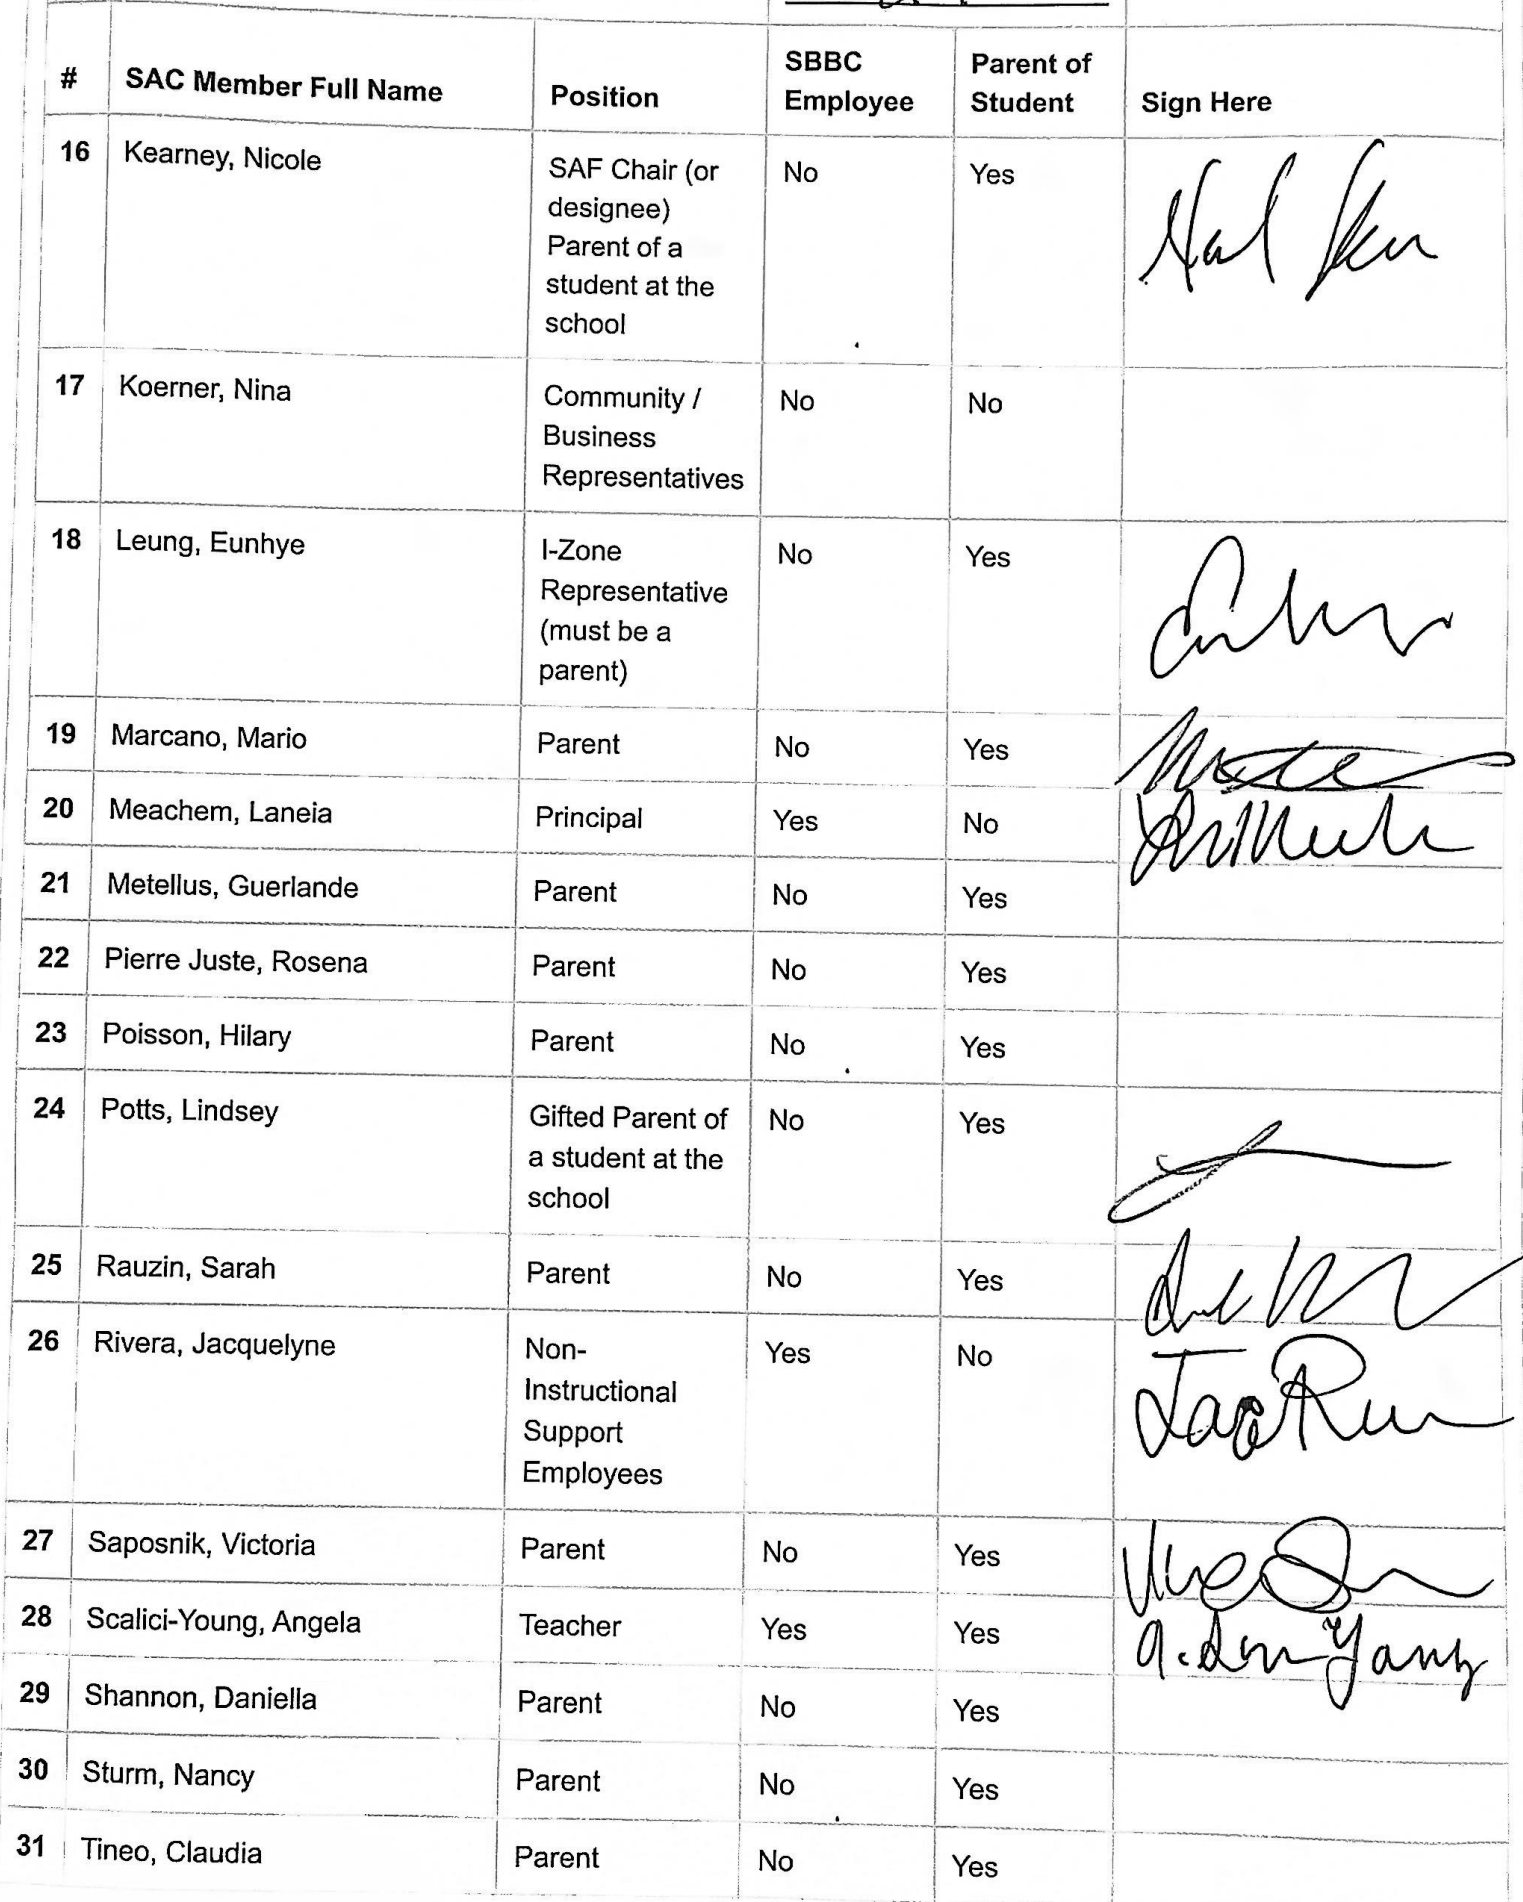 # SAC Member Full Name Position SBBC Employee Parent of Student Sign Here
16 Kearney, Nicole SAF Chair (or No Yes
designee)
Parent of a
student at the
school
17 Koerner, Nina Community / No No
Business
Representatives
18 Leung, Eunhye I-Zone No Yes
Representative
(must be a
parent)
19 Marcano, Mario Parent No Yes
20 Meachem, Laneia Principal Yes No
21 Metellus, Guerlande Parent No Yes
22 Pierre Juste, Rosena Parent No Yes
23 Poisson, Hilary Parent No Yes
24 Potts, Lindsey Gifted Parent of No Yes
a student at the
school
25 Rauzin, Sarah Parent No Yes
26 Rivera, Jacquelyne Non- Yes No
Instructional
Support
Employees
27 Saposnik, Victoria Parent No Yes
28 Scalici-Young, Angela Teacher Yes Yes
29 Shannon, Daniella Parent No Yes
30 Sturm, Nancy Parent No Yes
31 Tineo, Claudia Parent No Yes